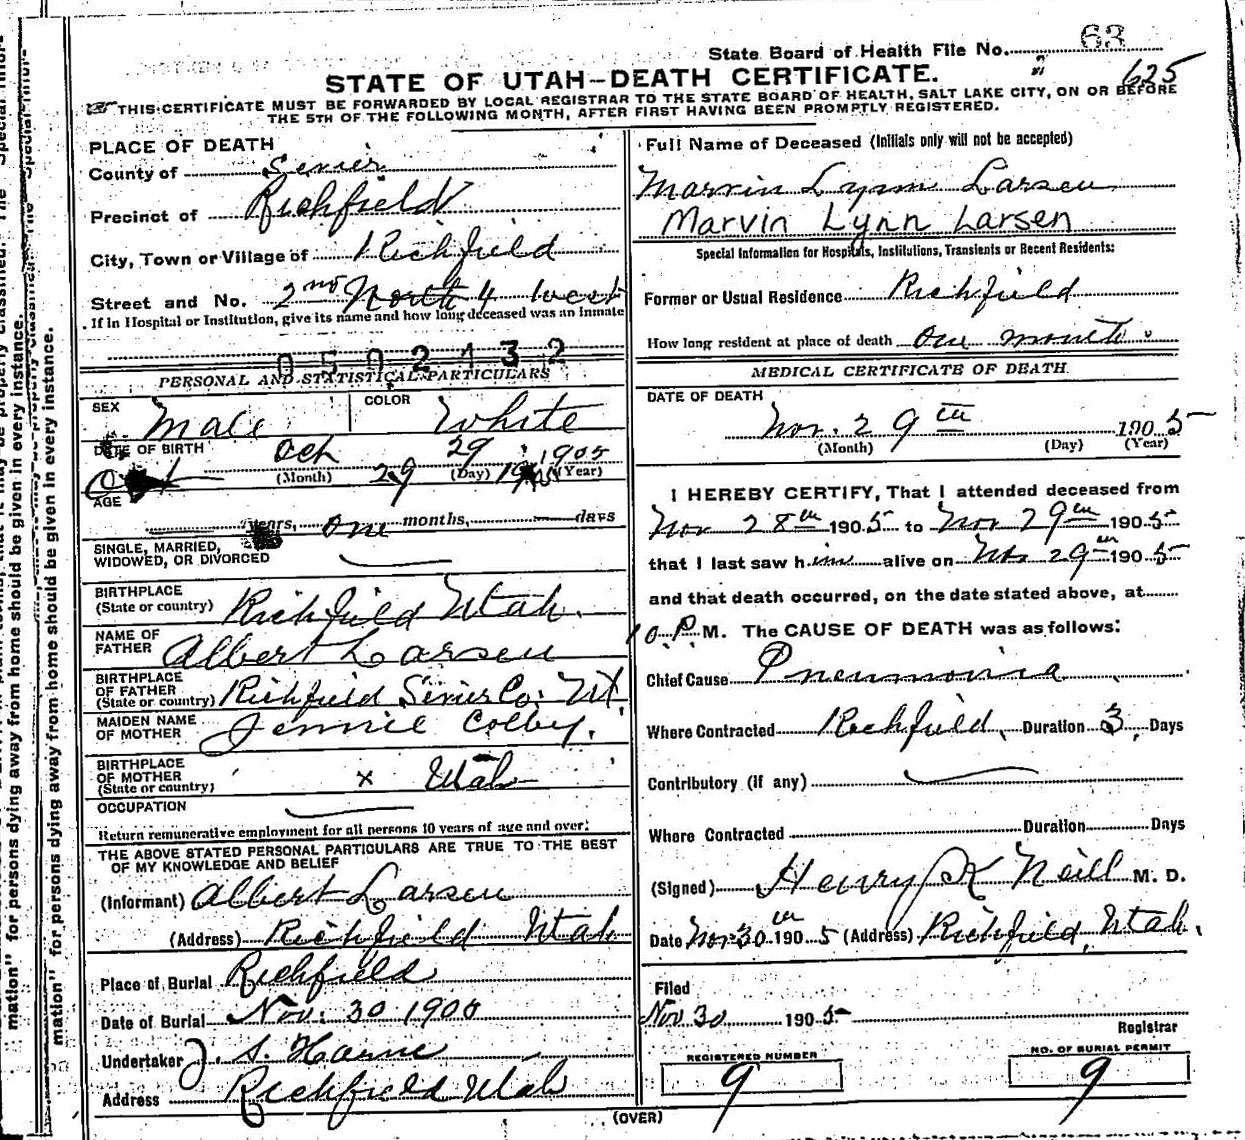 63
State Board of Health File No.
625
STATE OF UTAH—DEATH CERTIFICATE.
THIS CERTIFICATE MUST BE FORWARDED BY LOCAL REGISTRAR TO THE STATE BOARD OF HEALTH, SALT LAKE CITY, ON OR BEFORE
THE 5TH OF THE FOLLOWING MONTH, AFTER FIRST HAVING BEEN PROMPTLY REGISTERED.
PLACE OF DEATH
County of Sevier
Precinct of Richfield
City, Town or Village of Richfield
Street and No. 2nd North 4 West
If in Hospital or Institution, give its name and how long deceased was an Inmate
0502132
PERSONAL AND STATISTICAL PARTICULARS
SEX Male COLOR White
DATE OF BIRTH Oct 29 1905
(Month) (Day) (Year)
Oct 29
AGE
years, one months, days
SINGLE, MARRIED,
WIDOWED, OR DIVORCED
BIRTHPLACE
(State or country) Richfield Utah.
NAME OF
FATHER Albert Larsen
BIRTHPLACE
OF FATHER
(State or country) Richfield Sevier Co. Ut.
MAIDEN NAME
OF MOTHER Jennie Colby.
BIRTHPLACE
OF MOTHER
(State or country) x Utah
OCCUPATION
Return remunerative employment for all persons 10 years of age and over:
THE ABOVE STATED PERSONAL PARTICULARS ARE TRUE TO THE BEST
OF MY KNOWLEDGE AND BELIEF
(Informant) Albert Larsen
(Address) Richfield Utah
Place of Burial Richfield
Date of Burial Nov. 30 1905
Undertaker J. S.
Address Richfield Utah
Full Name of Deceased (Initials only will not be accepted)
Marvin Lynn Larsen
Marvin Lynn Larsen
Special Information for Hospitals, Institutions, Transients or Recent Residents:
Former or Usual Residence Richfield
How long resident at place of death one month
MEDICAL CERTIFICATE OF DEATH
DATE OF DEATH
Nov. 29th 1905
(Month) (Day) (Year)
I HEREBY CERTIFY, That I attended deceased from
Nov 28th 1905 to Nov 29th 1905
that I last saw him alive on Nov 29th 1905
and that death occurred, on the date stated above, at
10 P. M. The CAUSE OF DEATH was as follows:
Chief Cause Pneumonia
Where Contracted Richfield, Duration 3 Days
Contributory (if any)
Where Contracted Duration Days
(Signed) Henry K Neill M. D.
Date Nov 30th 1905 (Address) Richfield, Utah.
Filed
Nov 30 1905
Registrar
REGISTERED NUMBER
9
NO. OF BURIAL PERMIT
9
(OVER)
mation" for persons dying away from home should be given in every instance.
mation" for persons dying away from home should be given in every instance.